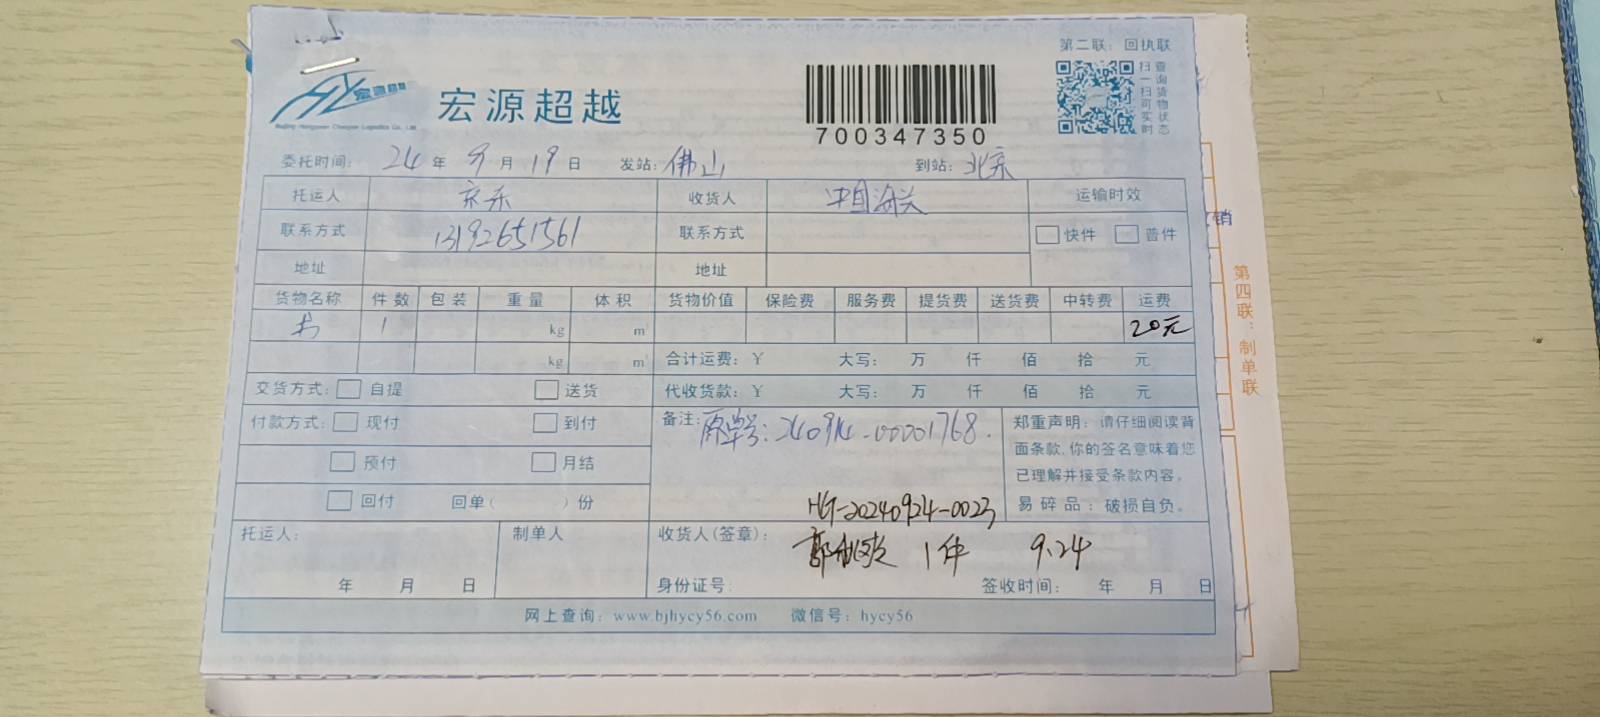 第二联：回执联
宏源超越
宏源超越
Beijing Hongyuan Chaoyue Logistics Co., Ltd.
700347350
扫一扫可实时
查询货物状态
委托时间： 24 年 9 月 19 日 发站：佛山 到站：北京
托运人 京东 收货人 中国海关 运输时效
联系方式 13192651561 联系方式 快件 普件
地址 地址
货物名称 件数 包装 重量 体积 货物价值 保险费 服务费 提货费 送货费 中转费 运费
书 1 kg m³ 20元
kg m³ 合计运费：￥ 大写： 万 仟 佰 拾 元
交货方式： 自提 送货 代收货款：￥ 大写： 万 仟 佰 拾 元
付款方式： 现付 到付 备注：原单号：240914-00001768.
预付 月结
回付 回单（ ）份
郑重声明：请仔细阅读背
面条款，你的签名意味着您
已理解并接受条款内容。
易碎品：破损自负。
HGT-20240924-0023
托运人： 制单人 收货人(签章)： 1件 9.24
年 月 日 身份证号： 签收时间： 年 月 日
网上查询：www.bjhycy56.com 微信号：hycy56
销
第四联：制单联